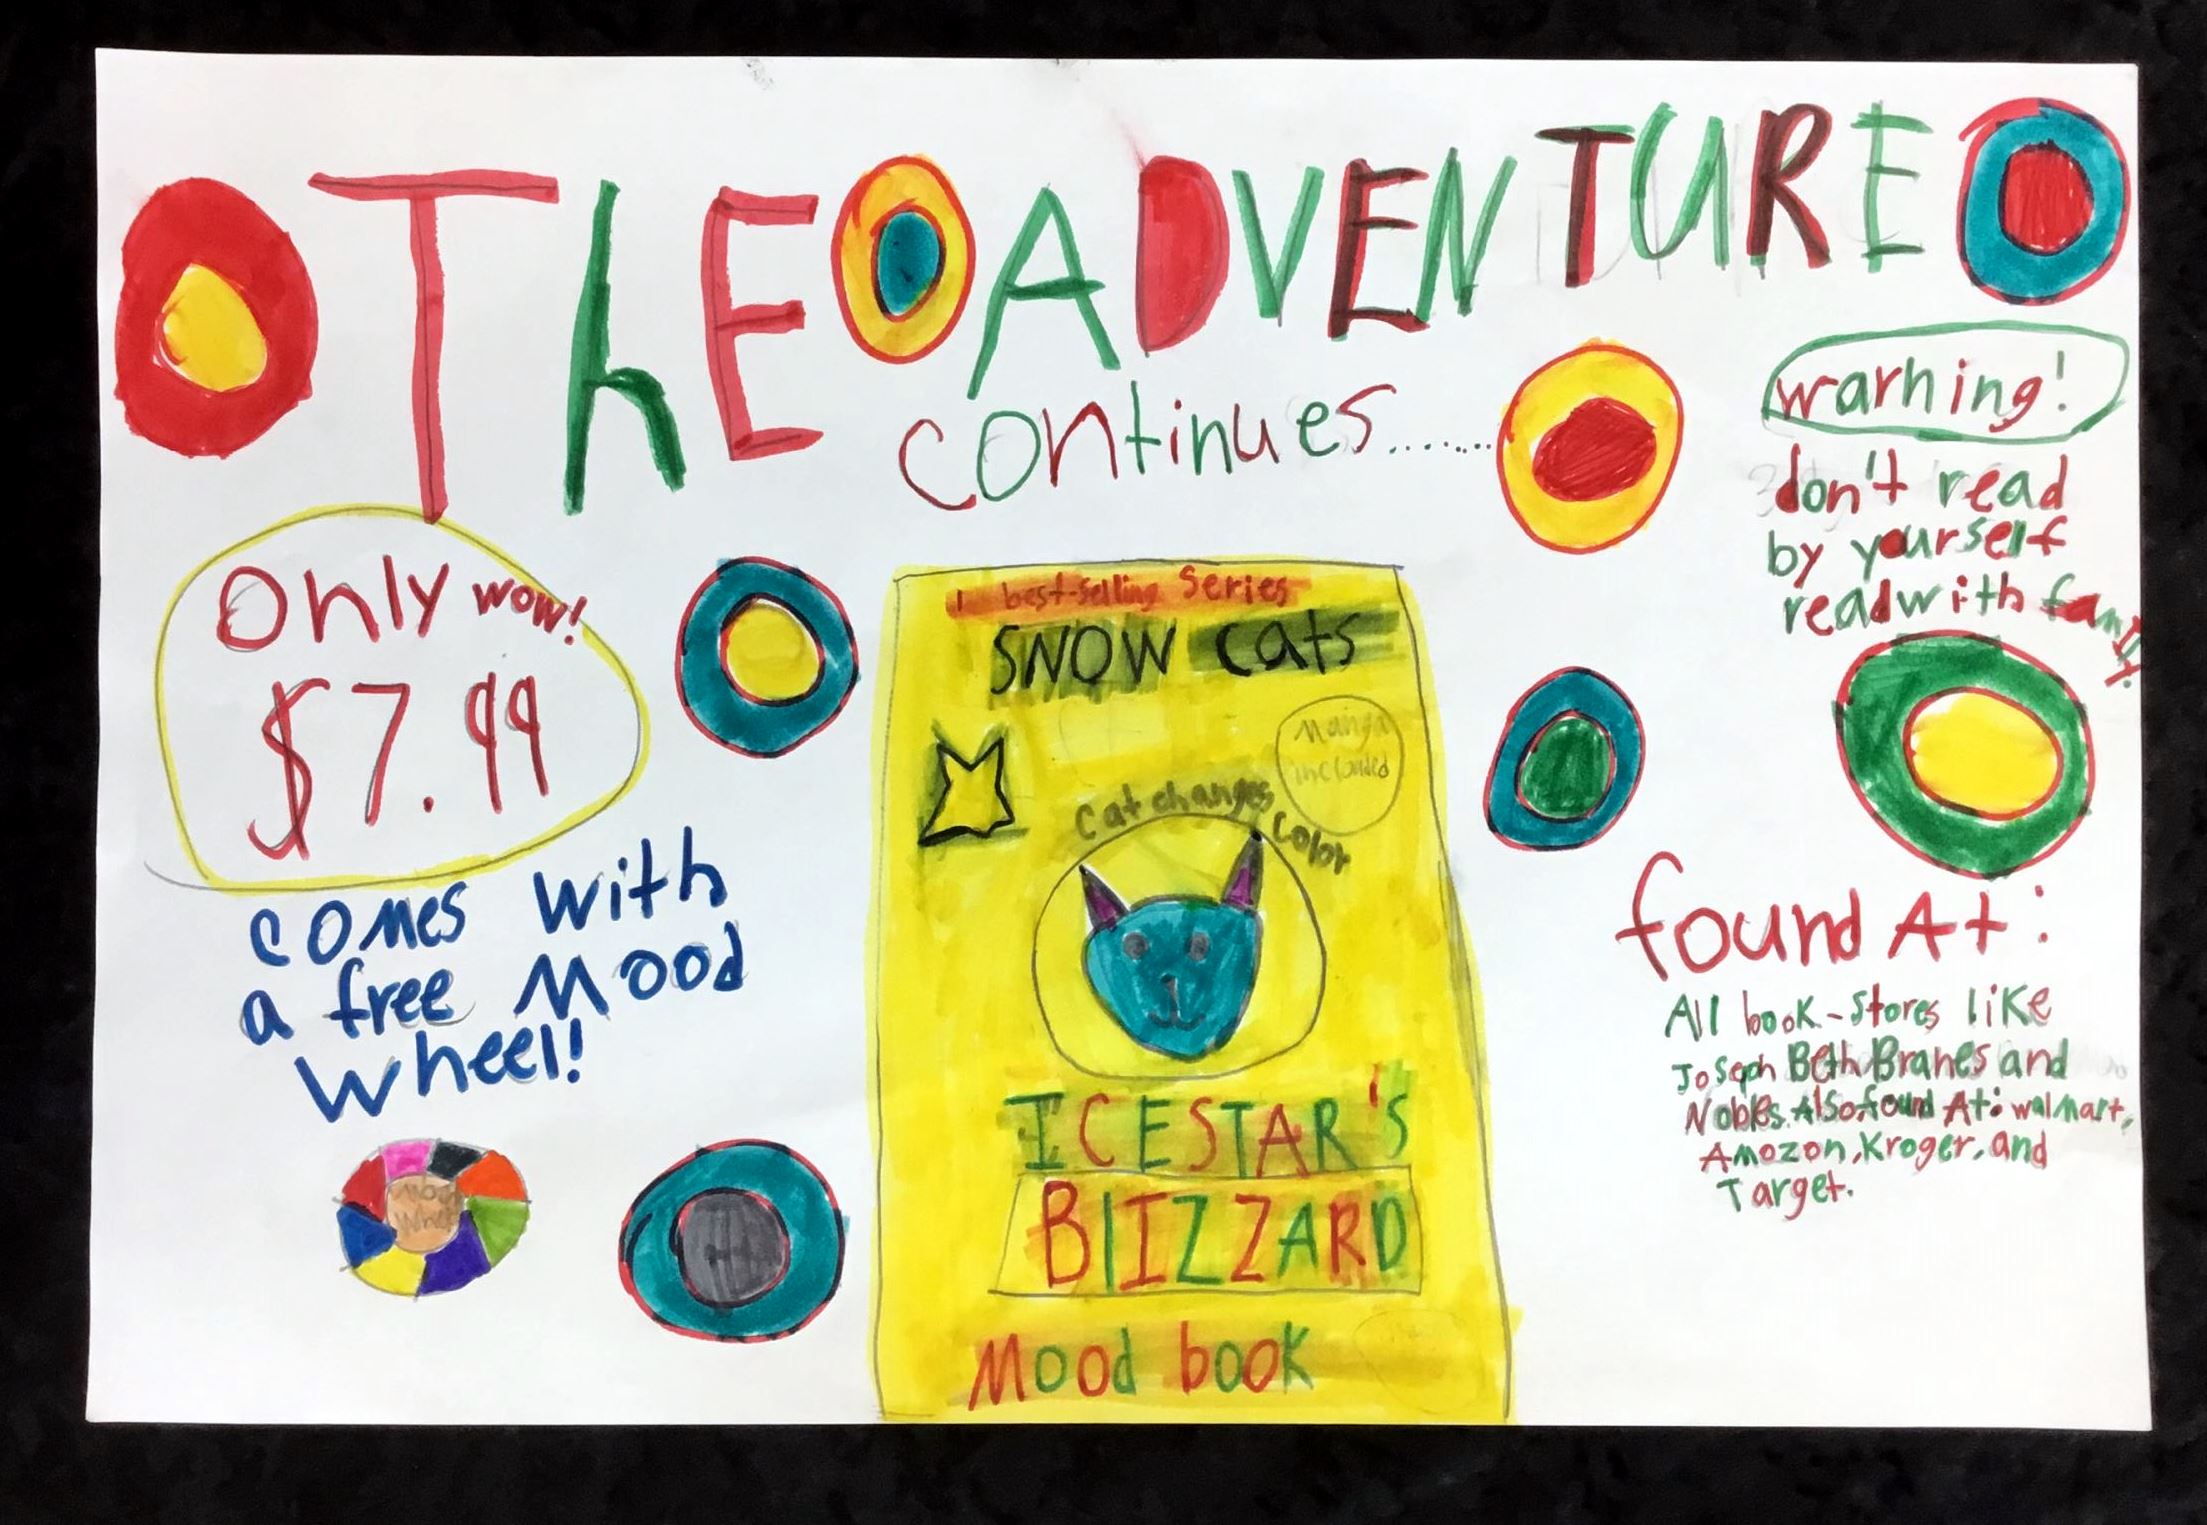 The ADVENTURE
continues........
Only wow!
$7.99
comes with
a free Mood
Wheel!
Mood
Wheel
1 best-selling Series
SNOW cats
Manga
inclouded
Cat changes
color
ICESTAR'S
BLIZZARD
Mood book
warning!
don't read
by yourself
read with family.
found At:
All book-stores like
Joseph Beth Branes and
Nobles. Also found At: walmart,
Amozon, Kroger, and
Target.